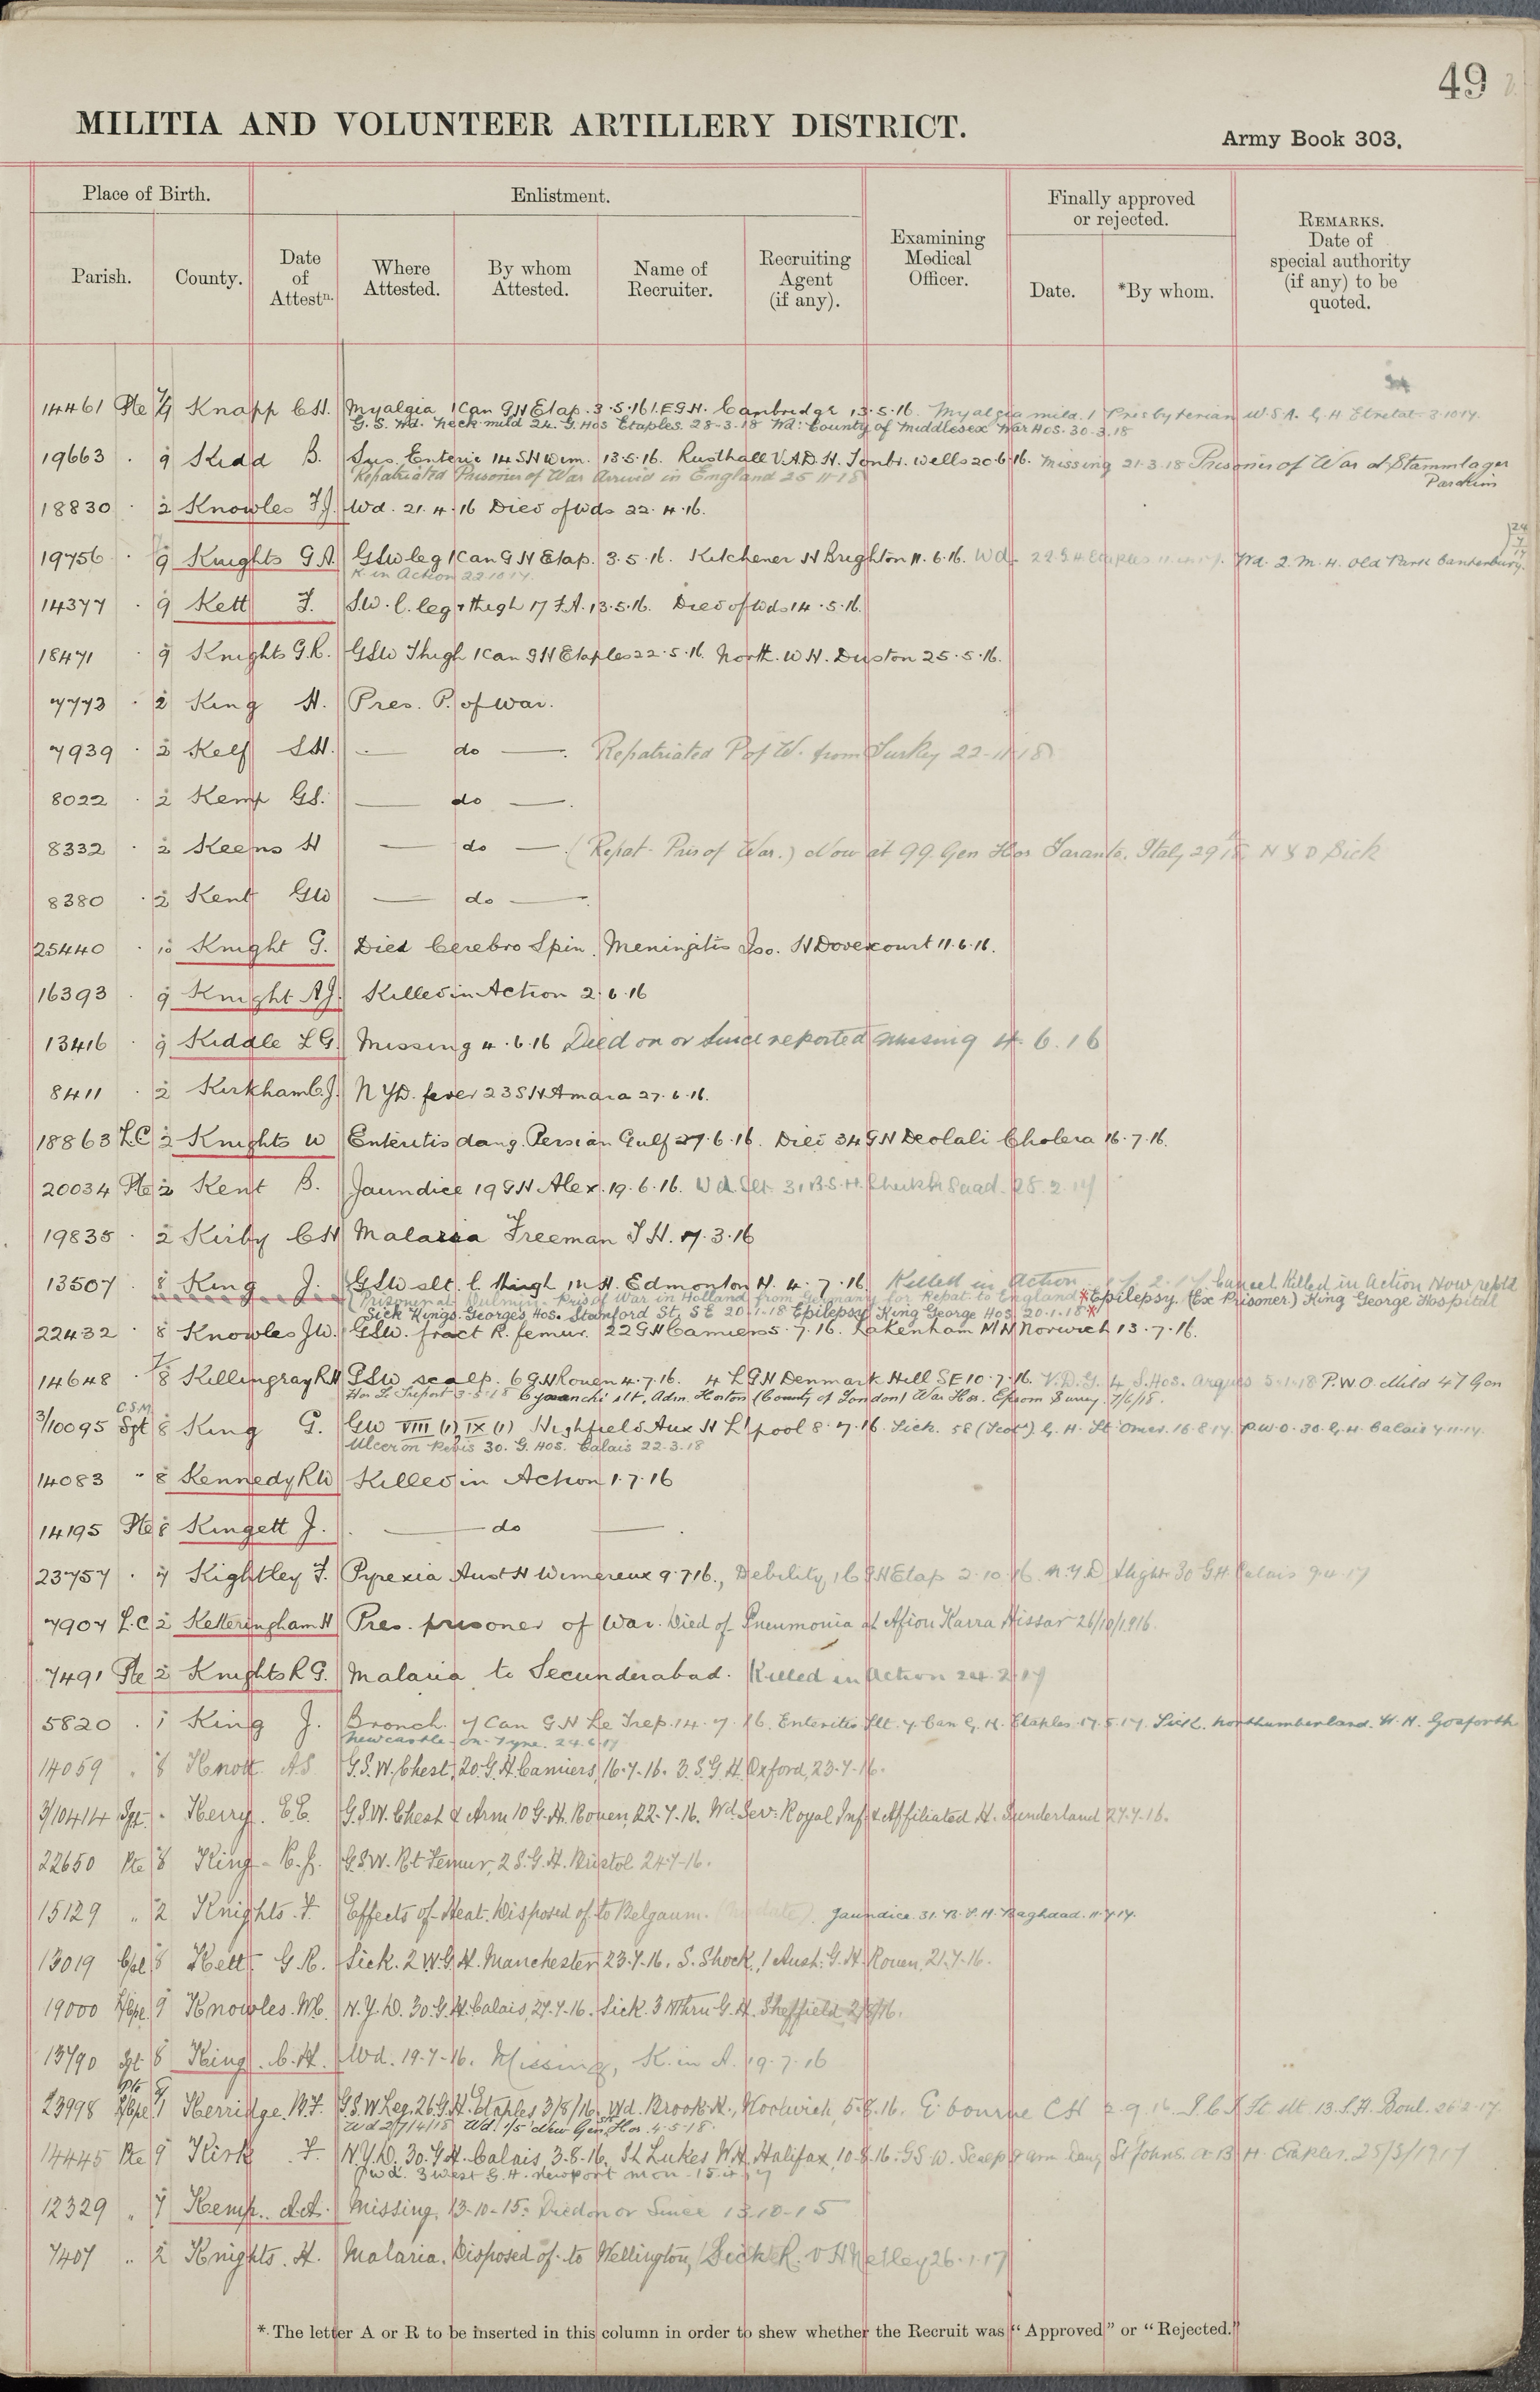 49
MILITIA AND VOLUNTEER ARTILLERY DISTRICT.
Army Book 303.
Place of Birth.
Enlistment.
Finally approved or rejected.
Parish.
County.
Date of Attestn.
Where Attested.
By whom Attested.
Name of Recruiter.
Recruiting Agent (if any).
Examining Medical Officer.
Date.
*By whom.
REMARKS. Date of special authority (if any) to be quoted.
14461 Pte 7/9 Knapp C.H. Myalgia 1 Can G H Etap. 3.5.16 1.E G.H. Cambridge 13.5.16. Myalgia mild. 1 Presbyterian U.S.A. G.H. Etretat 3.10.17.
G.S. Wd. Neck mild 24. G. Hos Etaples 28-3-18 Wd: County of Middlesex War Hos. 30.3.18
19663 . 9 Kidd B. Sus. Enteric 14 S H Wim. 13.5.16. Rusthall V.A.D. H. Tonbr. Wells 20.6.16. Missing 21.3.18 Prisoner of War at Stammlager Parchim
Repatriated Prisoner of War Arrived in England 25 11 18
18830 . 2 Knowles F.J. Wd. 21.4.16 Died of Wds 22.4.16.
19756 . 9 Knights G.A. GSW leg 1 Can G H Etap. 3.5.16. Kitchener H Brighton 11.6.16. Wd. 22.G H Etaples Wd. 2. M. H. Old Park Canterbury.
K. in Action 22 10 17.
14377 . 9 Kett F. SW. l. leg & thigh 17 F.A. 13.5.16. Died of Wds 14.5.16.
18471 . 9 Knights G.R. GSW Thigh 1 Can G H Etaples 22.5.16. North. W H. Duston 25.5.16.
7773 . 2 King H. Pres. P. of war.
7939 . 2 Kelf S.H. — do — Repatriated P of W. from Turkey 22-11-18
8022 . 2 Kemp G.S. — do —.
8332 . 2 Keens H — do — (Repat. Pris of War.) Now at 99 Gen Hos Taranto, Italy N Y D Sick
8380 . 2 Kent GW — do —
25440 . 10 Knight G. Died Cerebro Spin. Meningitis Iso. H Dovercourt 11.6.16.
16393 . 9 Knight A.J. Killed in Action 2.6.16
13416 . 9 Kiddle L G. Missing 4.6.16 Died on or since reported missing 4.6.16
8411 . 2 Kirkham C.J. N Y D. fever 23 S H Amara 27.6.16.
18863 L.C 2 Knights W Enteritis dang. Persian Gulf 27.6.16. Died 34 G H Deolali Cholera 16.7.16.
20034 Pte 2 Kent B. Jaundice 19 G H Alex. 19.6.16. Wd. Slt. 31. B.S.H. Sheikh Saad. 25.2.17
19835 . 2 Kirby C H Malaria Freeman T H. 7.3.16
13507 . 8 King J. GSW slt. l. thigh 1 W H. Edmonton H. 4.7.16 Killed in Action Cancel Killed in Action Now repld
Prisoner at Dulmen. Pris of War in Holland from Germany for Repat. to England *Epilepsy. (Ex Prisoner.) King George Hospital
Sick Kings George's Hos. Stanford St. SE 20-1-18 Epilepsy King George Hos 20.1.18*
22432 . 8 Knowles J.W. GSW. fract R. femur. 22 G H Camiers 5.7.16. Lakenham M H Norwich 13.7.16.
14648 . 7/8 Killingray R H GSW scalp. 6 G H Rouen 4.7.16. 4 L G H Denmark Hill SE 10.7.16. V.D.G. 4 S.Hos. Arques 5-1-18 P.W.O. Mild 47 Gen
Hos Le Treport 3-5-18 slt, Adm. Horton (County of London) War Hos. Epsom Surrey. 7/6/18.
3/10095 C.S.M. Sgt 8 King G. GW VIII (1) IX (1) Highfield Aux H L'pool 8.7.16. Sick. 58 (Scot) G. H. St Omer. 16.8.17. P.W.O. 30. G. H. Calais 7.11.17.
Ulcer on Penis 30. G. Hos. Calais 22.3.18
14083 " 8 Kennedy R.W Killed in Action 1.7.16
14195 Pte 8 Kingett J. — do —.
23757 . 7 Kightley F. Pyrexia Aust H Wimereux 9.7.16., Debility, 16 G H Etap 2.10.16. N.Y.D slight 30 G H Calais 9.4.17
7907 L.C 2 Ketteringham H Pres. prisoner of War. Died of Pneumonia at Afion Karra Hissar 26/10/1916.
7491 Pte 2 Knights R G. Malaria to Secunderabad. Killed in Action 24.2.17
5820 . 1 King J. Bronch. 7 Can G H Le Trep. 14.7.16. Enteritis Slt. 7. Can G. H. Etaples 17.5.17. Sick. Northumberland. W. H. Gosforth
Newcastle-on-Tyne. 24.6.17
14059 . 8 Knott A.S. G.S.W. Chest, 20. G.H. Camiers, 16-7-16. 3. S. G. H. Oxford, 23-7-16.
3/10414 Sgt. . Kerry. E.C. G.S.W. Chest & Arm 10 G.H. Rouen, 22-7-16. Wd. Sev: Royal Inf & Affiliated H. Sunderland 27.7-16.
22650 Pte 8 King - R.J. G.S.W. Rt Femur, 2 S.G.H. Bristol 24-7-16.
15129 " 2 Knights. F. Effects of Heat. Disposed of to Belgaum. (No date). Jaundice. 31. B. S. H. Baghdad. 11.7.17.
13019 Cpl 8 Kett. G.R. Sick. 2 W.G.H. Manchester 23-7-16. S. Shock, 1 Aust. G.H. Rouen, 21.7-16.
19000 L/Cpl 9 Knowles. W.C. N.Y.D. 30. G.H. Calais, 27-7-16. Sick. 3 Nthrn G.H. Sheffield 2/8/16.
13790 Sgt 8 King. C.H. Wd. 19-7-16. Missing, K. in A. 19.7.16
23998 L/Cpl Kerridge. B.F. G.S.W Leg. 26. G.H. Etaples 3/8/16, Wd. Brook H., Woolwich, 5.8.16. E'bourne C H 2.9.16. I.C.T. Ft slt. 13. S.H. Boul. 26.2.17.
Wd 2/7/4/18 Wd. 1/5 New Gen Hos. 4-5-18.
14445 Pte 9 Kirk F. N.Y.D. 30. G.H. Calais, 3.8-16, St Lukes W.H. Halifax, 10-8-16. GSW. Scalp & arm Dang St Johns. A. B H. Etaples. 25/3/1917
3 West G. H. Newport Mon. 15.4.17
12329 " 7 Kemp.. A.A. Missing, 13-10-15: Died on or Since 13-10-15
7407 " 2 Knights. H. Malaria. Disposed of to Wellington, Sick R. V H Netley 26.1.17
*. The letter A or R to be inserted in this column in order to shew whether the Recruit was “Approved” or “Rejected.”